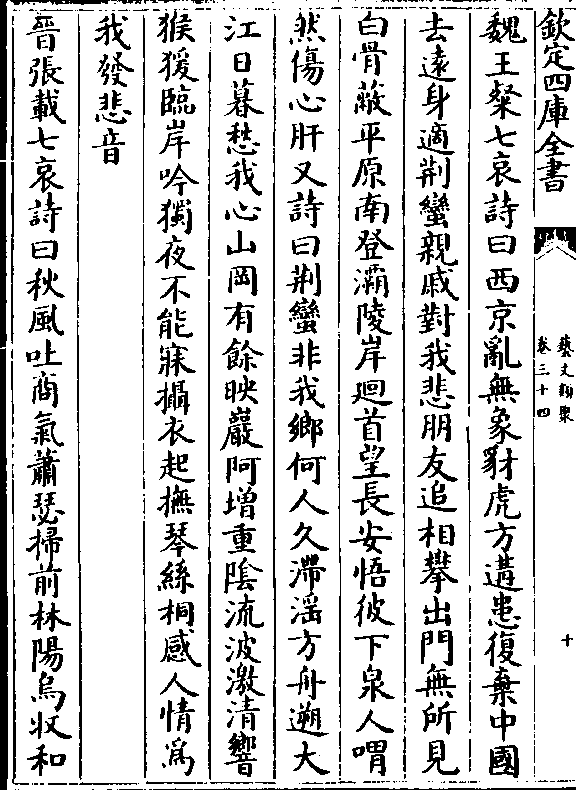 欽定四庫全書
藝文類聚
卷三十四
十
魏王粲七哀詩曰西京亂無象豺虎方遘患復棄中國
去遠身適荆蠻親戚對我悲朋友追相攀出門無所見
白骨蔽平原南登灞陵岸廻首望長安悟彼下泉人喟
然傷心肝又詩曰荆蠻非我鄉何人久滯滛方舟遡大
江日暮愁我心山岡有餘映巖阿增重陰流波激清響
猴猨臨岸吟獨夜不能寐攝衣起撫琴絲桐感人情為
我發悲音
晉張載七哀詩曰秋風吐商氣蕭瑟掃前林陽烏收和